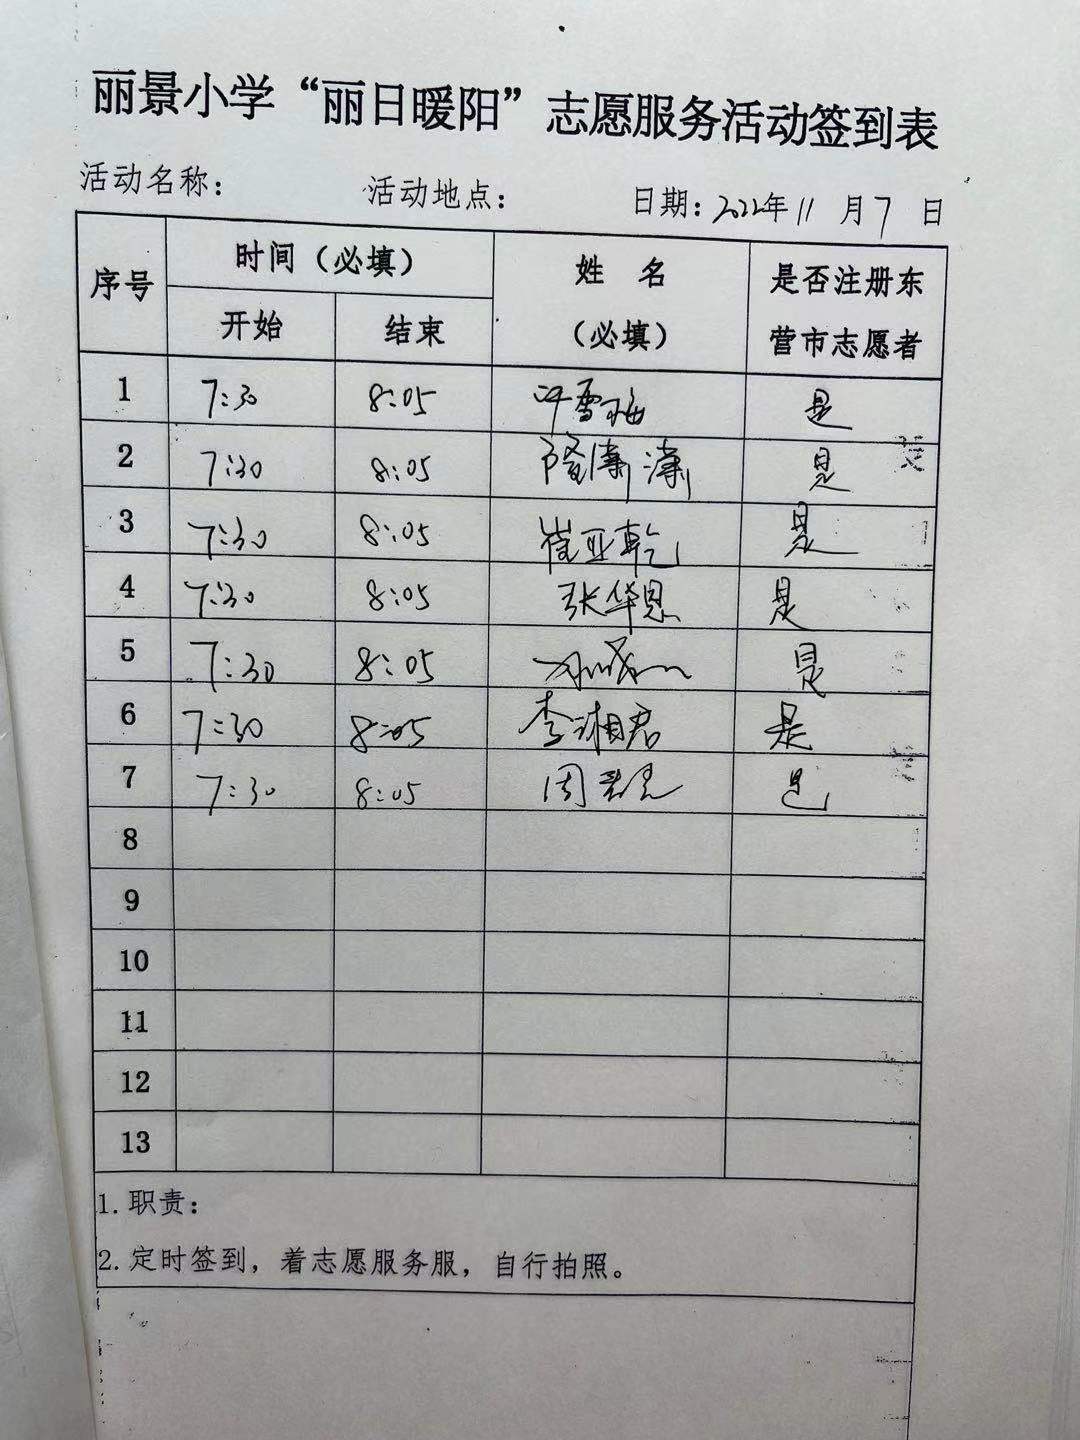 丽景小学“丽日暖阳”志愿服务活动签到表
活动名称： 活动地点： 日期：2022年11月7日
序号 时间（必填） 姓 名（必填） 是否注册东营市志愿者
开始 结束
1 7:30 8:05 叶雪梅 是
2 7:30 8:05 隆潇潇 是
3 7:30 8:05 崔亚乾 是
4 7:30 8:05 张华恩 是
5 7:30 8:05 是
6 7:30 8:05 李湘君 是
7 7:30 8:05 周 是
8
9
10
11
12
13
1. 职责：
2. 定时签到，着志愿服务服，自行拍照。